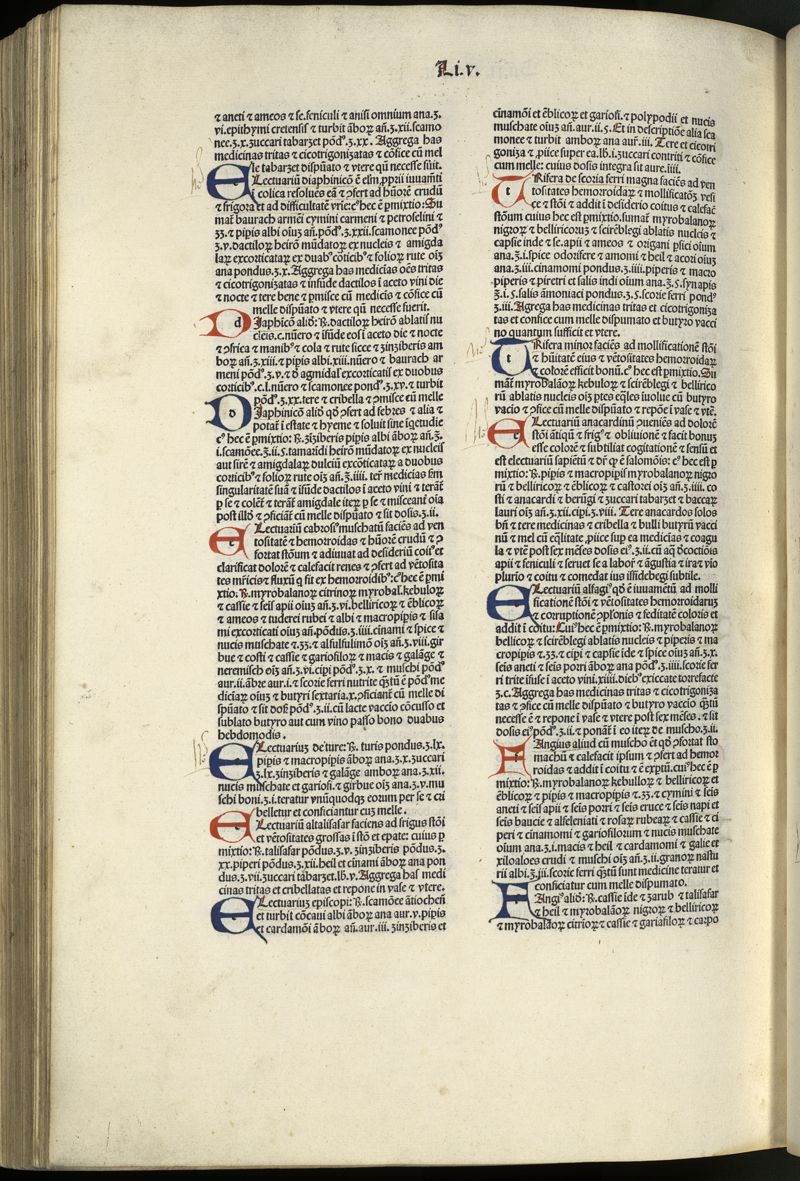 Li.v.
⁊ aneti ⁊ ameos ⁊ se.feniculi ⁊ anisi omnium ana.ʒ.
vi.epithymi cretensis ⁊ turbit ãboꝝ añ.ʒ.xii.scamo
nee.ʒ.x.zuccari tabarzet põdꝰ.ʒ.xx. Aggrega has
medicinas tritas ⁊ cicotrigonizatas ⁊ cõfice cũ mel
le tabarzet dispũato ⁊ vtere qũ necesse fũit.
ELectuariũ diaphinicõ ẽ elsm ꝓprii iuuamẽti
ĩ colica resoluẽs eã ⁊ ꝯfert ad hũorẽ crudũ
⁊ frigora et ad difficultatẽ vrie:eꝰ hec ẽ ꝑmixtio: Su
mat̃ baurach armẽi cymini carmeni ⁊ petroselini ⁊
ʒʒ. ⁊ pipis albi oiuʒ añ.põdꝰ.ʒ.xxii.scamonee põdꝰ
ʒ.v.dactiloꝝ heirõ mũdatoꝝ ex nucleis ⁊ amigda
laꝝ excorticataꝝ ex duabꝰ corticibꝰ ⁊ folioꝝ rute oiʒ
ana pondus.ʒ.x. Aggrega has medicĩas oẽs tritas
⁊ cicotrigonizatas ⁊ infũde dactilos ĩ aceto vini die
⁊ nocte ⁊ tere bene ⁊ ꝑmisce cũ medicĩs ⁊ cõfice cũ
melle dispũato ⁊ vtere qũ necesse fuerit.
DIaphĩcõ aliđ: ℞.dactiloꝝ heirõ ablatis nu
cleis.c.nũero ⁊ ĩfũde eos ĩ aceto die ⁊ nocte
⁊ ꝯfrica ⁊ manibꝰ ⁊ cola ⁊ rute sicce ⁊ zinziberis am
boꝝ añ.ʒ.xiii.⁊ pipis albi.xiii.nũero ⁊ baurach ar
meni põdꝰ.ʒ.v.⁊ đ agmidal excorticatis ex duobus
corticibꝰ.c.l.nũero ⁊ scamonee pondꝰ.ʒ.xv.⁊ turbit
põdꝰ.ʒ.xx.tere ⁊ cribella ⁊ ꝑmisce cũ melle
DIaphinicõ aliđ qđ ꝯfert ad febres ⁊ alia ⁊
potat̃ ĩ estate ⁊ hyeme ⁊ soluit sine ĩqetudie
eꝰ hec ẽ ꝑmixtio: ℞.zĩziberis pipis albi ãboꝝ añ.ʒ.
i.scamõee.ʒ.ii.s.tamarĩdi heirõ mũdatoꝝ ex nucleis
aut sirẽ ⁊ amigdalaꝝ dulciũ excõticataꝝ a duobus
corticibꝰ ⁊ folioꝝ rute oiʒ añ.ʒ.iiii. ter̃ medicĩas sm
singularitatẽ suã ⁊ ĩfũde dactilos ĩ aceto vini ⁊ terãt̃
ꝑ se ⁊ colẽt̃ ⁊ terãt̃ amigdale iteꝝ ꝑ se ⁊ misceant̃ oĩa
post illđ ⁊ ꝯficiãt̃ cũ melle dispũato ⁊ sit dosis.ʒ.ii.
ELectuariũ cabrosiꝰ muschatũ faciẽs ad ven
tositatẽ ⁊ hemorroidas ⁊ hũorẽ crudũ ⁊ ꝯ
fortat stõum ⁊ adiuuat ad desideriũ coitꝰ et
clarificat dolorẽ ⁊ calefacit renes ⁊ ꝯfert ad vẽtosita
tes mr̃icis ⁊ fluxũ q̃ fit ex hemorroidibꝰ: eꝰ hec ẽ ꝑmi
xtio: ℞.myrobalanoꝝ citrinoꝝ myrobal.kebuloꝝ
⁊ cassie ⁊ seis apii oiuʒ añ.ʒ.vi.belliricoꝝ ⁊ ẽblicoꝝ
⁊ ameos ⁊ tuderei rubei ⁊ albi ⁊ macropipis ⁊ sisa
mi excorticati oiuʒ añ.põdus.ʒ.iiii.cinami ⁊ spice ⁊
nucis muschate ⁊ ʒʒ.⁊ alfulfulimõ oiʒ añ.ʒ.viii.gir
bue ⁊ costi ⁊ cassie ⁊ gariofiloꝝ ⁊ macis ⁊ galãge ⁊
neremisch oiʒ añ.ʒ.vi.cipi põdꝰ.ʒ.x.⁊ muschi põdꝰ
aur.ii.ãbre aur.i.⁊ scorie ferri nutrite qʒtũ ẽ põdꝰ me
diciaꝝ oiuʒ ⁊ butyri sextaria.x.ꝯficiant̃ cũ melle di
spũato ⁊ sit dosꝭ põdꝰ.ʒ.ii.cũ lacte vaccio cõcusso et
sublato butyro aut cum vino passo bono duabus
hebdomodis.
ELectuariuʒ de ture: ℞. turis pondus.ʒ.lx.
pipis ⁊ macropipis ãboꝝ ana.ʒ.x.zuccari
ʒ.lx.zinziberis ⁊ galãge amboꝝ ana.ʒ.xii.
nucis muschate et gariofi.⁊ girbue oiʒ ana.ʒ.v.mu
schi boni.ʒ.i.teratur vnũquodqꝫ eorum per se ⁊ cri
belletur et conficiantur cuʒ melle.
ELectuariũ altalisafar faciens ad frigus stõi
et vẽtositates grossas ĩ stõ et epate: cuius ꝑ
mixtio: ℞.talisafar põdus.ʒ.v. zinziberis põdus.ʒ.
xx.piperi põdus.ʒ.xii.heil et cĩnami ãboꝝ ana pon
dus.ʒ.vii.zuccari tabarzet.lb.v.Aggrega has medi
cinas tritas et cribellatas et repone in vase ⁊ vtere.
ELectuarius episcopi: ℞.scamõee ãtiochen̄
et turbit cõcaui albi ãboꝝ ana aur.v.pipis
et cardamõi ãboꝝ añ.aur.iii.zinziberis et
cinamõi et ẽblicoꝝ et gariofi.⁊ polypodii et nucis
muschate oiuʒ añ.aur.ii.s.Et in descriptiõe alia sca
monee ⁊ turbit amboꝝ ana aur̃.iii.Tere et cicotri
goniza ⁊ ꝓiice super ea.lb.i.zuccari contriti ⁊ cõfice
cum melle: cuius dosis integra sit aure.iiii.
TRifera de scoria ferri magna faciẽs ad ven
tositates hemorroidaꝝ ⁊ mollificatõʒ vesi
ce ⁊ stõi ⁊ addit ĩ desiderio coitus ⁊ calefac̃
stõum cuius hec est ꝑmixtio.sumat̃ myrobalanoꝝ
nigroꝝ ⁊ belliricorus ⁊ sceirẽblegi ablatis nucleis ⁊
capsie inde ⁊ se.apii ⁊ ameos ⁊ origani ꝑsici oium
ana.ʒ.i.spice odorifere ⁊ amomi ⁊ heil ⁊ acori oiuʒ
ana.ʒ.iii.cinamomi pondus.ʒ.iiii.piperis ⁊ macro
piperis ⁊ piretri et salis indi oium ana.ʒ.s.synapis
ʒ.i.s.salis ãmoniaci pondus.ʒ.s.scorie ferri pondꝰ
ʒ.iii.Agrega has medicinas tritas et cicotrigoniza
tas et confice cum melle dispumato et butyro vacci
no quantum sufficit et vtere.
TRifera minor faciẽs ad mollificationẽ stõi
⁊ hũitatẽ eius ⁊ vẽtositates hemorroidaꝝ
⁊ colorẽ efficit bonũ.eꝰ hec est ꝑmixtio. Su
mãt̃ myrobalãoꝝ kebuloꝝ ⁊ sceirẽblegi ⁊ bellirico
rũ ablatis nucleis oiʒ ptes eq̃les iuolue cũ butyro
vacio ⁊ ꝯfice cũ melle dispũato ⁊ repõe ĩ vase ⁊ vtẽ.
ELectuariũ anacardinũ ꝯueniẽs ad dolorẽ
stõi ãtiqũ ⁊ frigꝰ ⁊ obliuionẽ ⁊ facit bonuʒ
esse colorẽ ⁊ subtiliat cogitationẽ ⁊ sensũ et
est electuariũ sapiẽtũ ⁊ dr̃ ꝙ ẽ salomõis: eꝰ hec est ꝑ
mixtio: ℞.pipis ⁊ macropipis myrobalanoꝝ nigro
rũ ⁊ belliricoꝝ ⁊ ẽblicoꝝ ⁊ castorei oiʒ añ.ʒ.iiii.co
sti ⁊ anacardi ⁊ berũgi ⁊ zuccari tabarzet ⁊ baccaꝝ
lauri oiʒ añ.ʒ.xii.cipi.ʒ.viii. Tere anacardos solos
bñ ⁊ tere medicinas ⁊ cribella ⁊ bulli butyrũ vacci
nũ ⁊ mel cũ eq̃litate ꝓiice sup ea medicĩas ⁊ coagu
la ⁊ vtẽ post sex mẽses dosis eiꝰ.ʒ.ii.cũ aq̃ đcoctiõis
apii ⁊ feniculi ⁊ seruet se a laboř ⁊ ãgustia ⁊ ira ⁊ vio
plurio ⁊ coitu ⁊ comedat ius isfidebegi subtile.
ELectuariũ alfagiꝰ qđ ẽ iuuamẽtũ ad molli
ficationẽ stõi ⁊ vẽtositates hemorroidaruʒ
⁊ corruptionẽ ꝑsonis ⁊ feditatẽ coloris et
addit ĩ coitu: Cuiꝰ hec ẽ ꝑmixtio: ℞.myrobalanoꝝ
belliricoꝝ ⁊ sceirẽblegi ablatis nucleis ⁊ piperis ⁊ ma
cropipis ⁊ ʒʒ.⁊ cipi ⁊ capsie ĩde ⁊ spice oiuʒ añ.ʒ.x.
seis aneti ⁊ seis porri ãboꝝ ana pondꝰ.ʒ.iiii.scorie fer
ri trite ĩfuse ĩ aceto vini.xiiii.diebꝰ exiccate torrefacte
ʒ.c. Aggrega has medicinas tritas ⁊ cicotrigoniza
tas ⁊ ꝯfice cũ melle dispũato ⁊ butyro vaccio qʒtũ
necesse ẽ ⁊ repone ĩ vase ⁊ vtere post sex mẽses.⁊ sit
dosis eiꝰ põdꝰ.ʒ.ii.⁊ ponãt̃ ĩ eo iter̃ de muscho.ʒ.ii.
FAngius aliud cũ muscho ẽt qđ ꝯfortat sto
machũ ⁊ calefacit ipsum ⁊ ꝯfert ad hemor
roidas ⁊ addit ĩ coitu ⁊ ẽ exptũ.cuiꝰ hec ẽ ꝑ
mixtio: ℞.myrobalanoꝝ kebulloꝝ ⁊ belliricoꝝ et
ẽblicoꝝ ⁊ pipis ⁊ macropipis ⁊.ʒʒ.⁊ cymini ⁊ seis
aneti ⁊ seis apii ⁊ seis porri ⁊ seis eruce ⁊ seis napi et
seis baucie ⁊ alfeleniati ⁊ rosaꝝ rubeaꝝ ⁊ cassie ⁊ ci
peri ⁊ cinamomi ⁊ gariofilorum ⁊ nucis muschate
oium ana.ʒ.i.macis ⁊ heil ⁊ cardamomi ⁊ galie et
xiloaloes crudi ⁊ muschi oiʒ añ.ʒ.ii.granoꝝ nastu
rii albi.ʒ.iii.scorie ferri qʒtũ sunt medicine teratur et
conficiatur cum melle dispumato.
FAngiꝰ aliđ: ℞.cassie ĩde ⁊ zarub ⁊ talisafar
⁊ heil ⁊ myrobalãoꝝ nigroꝝ ⁊ belliricoꝝ
⁊ myrobalãoꝝ citrioꝝ ⁊ cassie ⁊ gariafiloꝝ ⁊ carpo